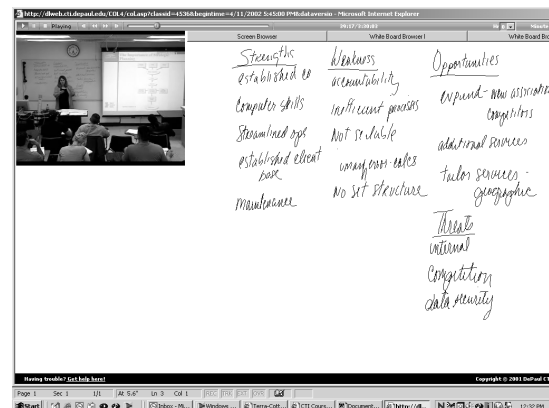 http://dlweb.cti.depaul.edu/COL4/col.asp?classid=4536&begintime=4/11/2002 5:45:00 PM&dataversio - Microsoft Internet Explorer
Playing
Screen Browser
White Board Browser I
White Board Bro
Strengths
established co
Computer skills
Streamlined ops
established client
base
maintenance
Weakness
accountability
Inefficient processes
Not scalable
No set structure
Opportunities
expand - new association
competitors
additional services
tailor services -
geographic
Threats
internal
Competition
data security
Having trouble? Get help here!
Copyright © 2001 DePaul CT
Page 1 Sec 1 1/1 At 5.6" Ln 3 Col 1 REC TRK EXT OVR
Start Inbox - Mi... Windows ... Terra-Cott... CTI Cours... Document... http://dl... 12:32 PM